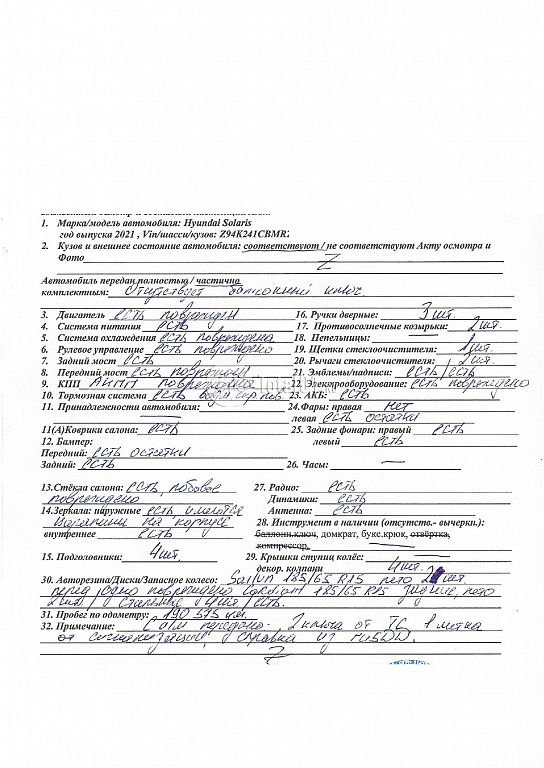 1. Марка/модель автомобиля: Hyundai Solaris
год выпуска 2021 , Vin/шасси/кузов: Z94K241CBMR
2. Кузов и внешнее состояние автомобиля: соответствуют / не соответствуют Акту осмотра и
Фото Z
Автомобиль передан полностью / частично
комплектным: Отсутствует баллонный ключ.
3. Двигатель есть поврежден 16. Ручки дверные: 3 шт.
4. Система питания есть 17. Противосолнечные козырьки: 2шт.
5. Система охлаждения есть повреждена 18. Пепельницы: —
6. Рулевое управление есть повреждено 19. Щетки стеклоочистителя: 1шт.
7. Задний мост есть 20. Рычаги стеклоочистителя: 2шт.
8. Передний мост есть поврежден 21. Эмблемы/надписи: есть/есть
9. КПП АКПП повреждена 22. Электрооборудование: есть повреждено
10. Тормозная система есть 23. АКБ: есть
11. Принадлежности автомобиля: — 24.Фары: правая нет
левая есть остатки
11(А)Коврики салона: есть 25. Задние фонари: правый есть
12. Бампер: левый есть
Передний: есть остатки
Задний: есть 26. Часы: —
13.Стёкла салона: есть, лобовое 27. Радио: есть
повреждено Динамики: есть
14.Зеркала: наружные есть имеются Антенна: есть
царапины на корпусе 28. Инструмент в наличии (отсутств.- вычерки.):
внутреннее есть баллонн.ключ, домкрат, букс.крюк, отвёртка,
компрессор,
15. Подголовники: 4шт. 29. Крышки ступиц колёс: —
декор. колпаки 4шт.
30. Авторезина/Диски/Запасное колесо: Sailun 185/65 R15 лето шт.
перед, повреждено Cordiant 185/65 R15 задние, лето
2шт / Стальные 4шт / есть.
31. Пробег по одометру: 190 575 км.
32. Примечание: 2 ключа от ТС 1 метка
от сигнализации, справка из ГИБДД
Z